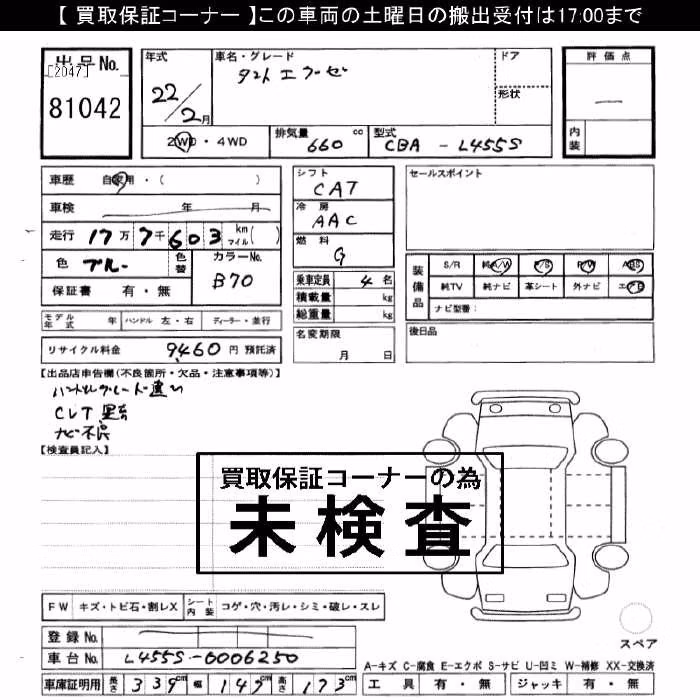 【 買取保証コーナー 】この車両の土曜日の搬出受付は17:00まで
出品No.
[2047]
81042
年式
22/2月
車名・グレード
タント エグゼ
ドア
形状
評価点
内装
2WD・4WD
排気量 660 cc
型式 CBA - L455S
車歴 自家用・( )
車検 年 月
走行 17万7千603 km マイル( )
色 ブルー 色替
カラーNo. B70
保証書 有・無
シフト CAT
冷房 AAC
燃料 G
乗車定員 4名
積載量 kg
総重量 kg
名変期限 月 日
セールスポイント
装備品
S/R 純A/W P/S P/W ABS
純TV 純ナビ 革シート 外ナビ エアB
ナビ型番:
後日品
モデル年式 年 ハンドル 左・右 ディーラー・並行
リサイクル料金 9460 円 預託済
【出品店申告欄(不良箇所・欠品・注意事項等)】
ナビ不良
【検査員記入】
買取保証コーナーの為
未検査
FW キズ・トビ石・割レX シート内装 コゲ・穴・汚レ・シミ・破レ・スレ
登録No.
車台No. L455S-0006250
車庫証明用 長さ 339cm 幅 147cm 高さ 173cm
スペア
A-キズ C-腐食 E-エクボ S-サビ U-凹ミ W-補修 XX-交換済
工具 有・無 ジャッキ 有・無